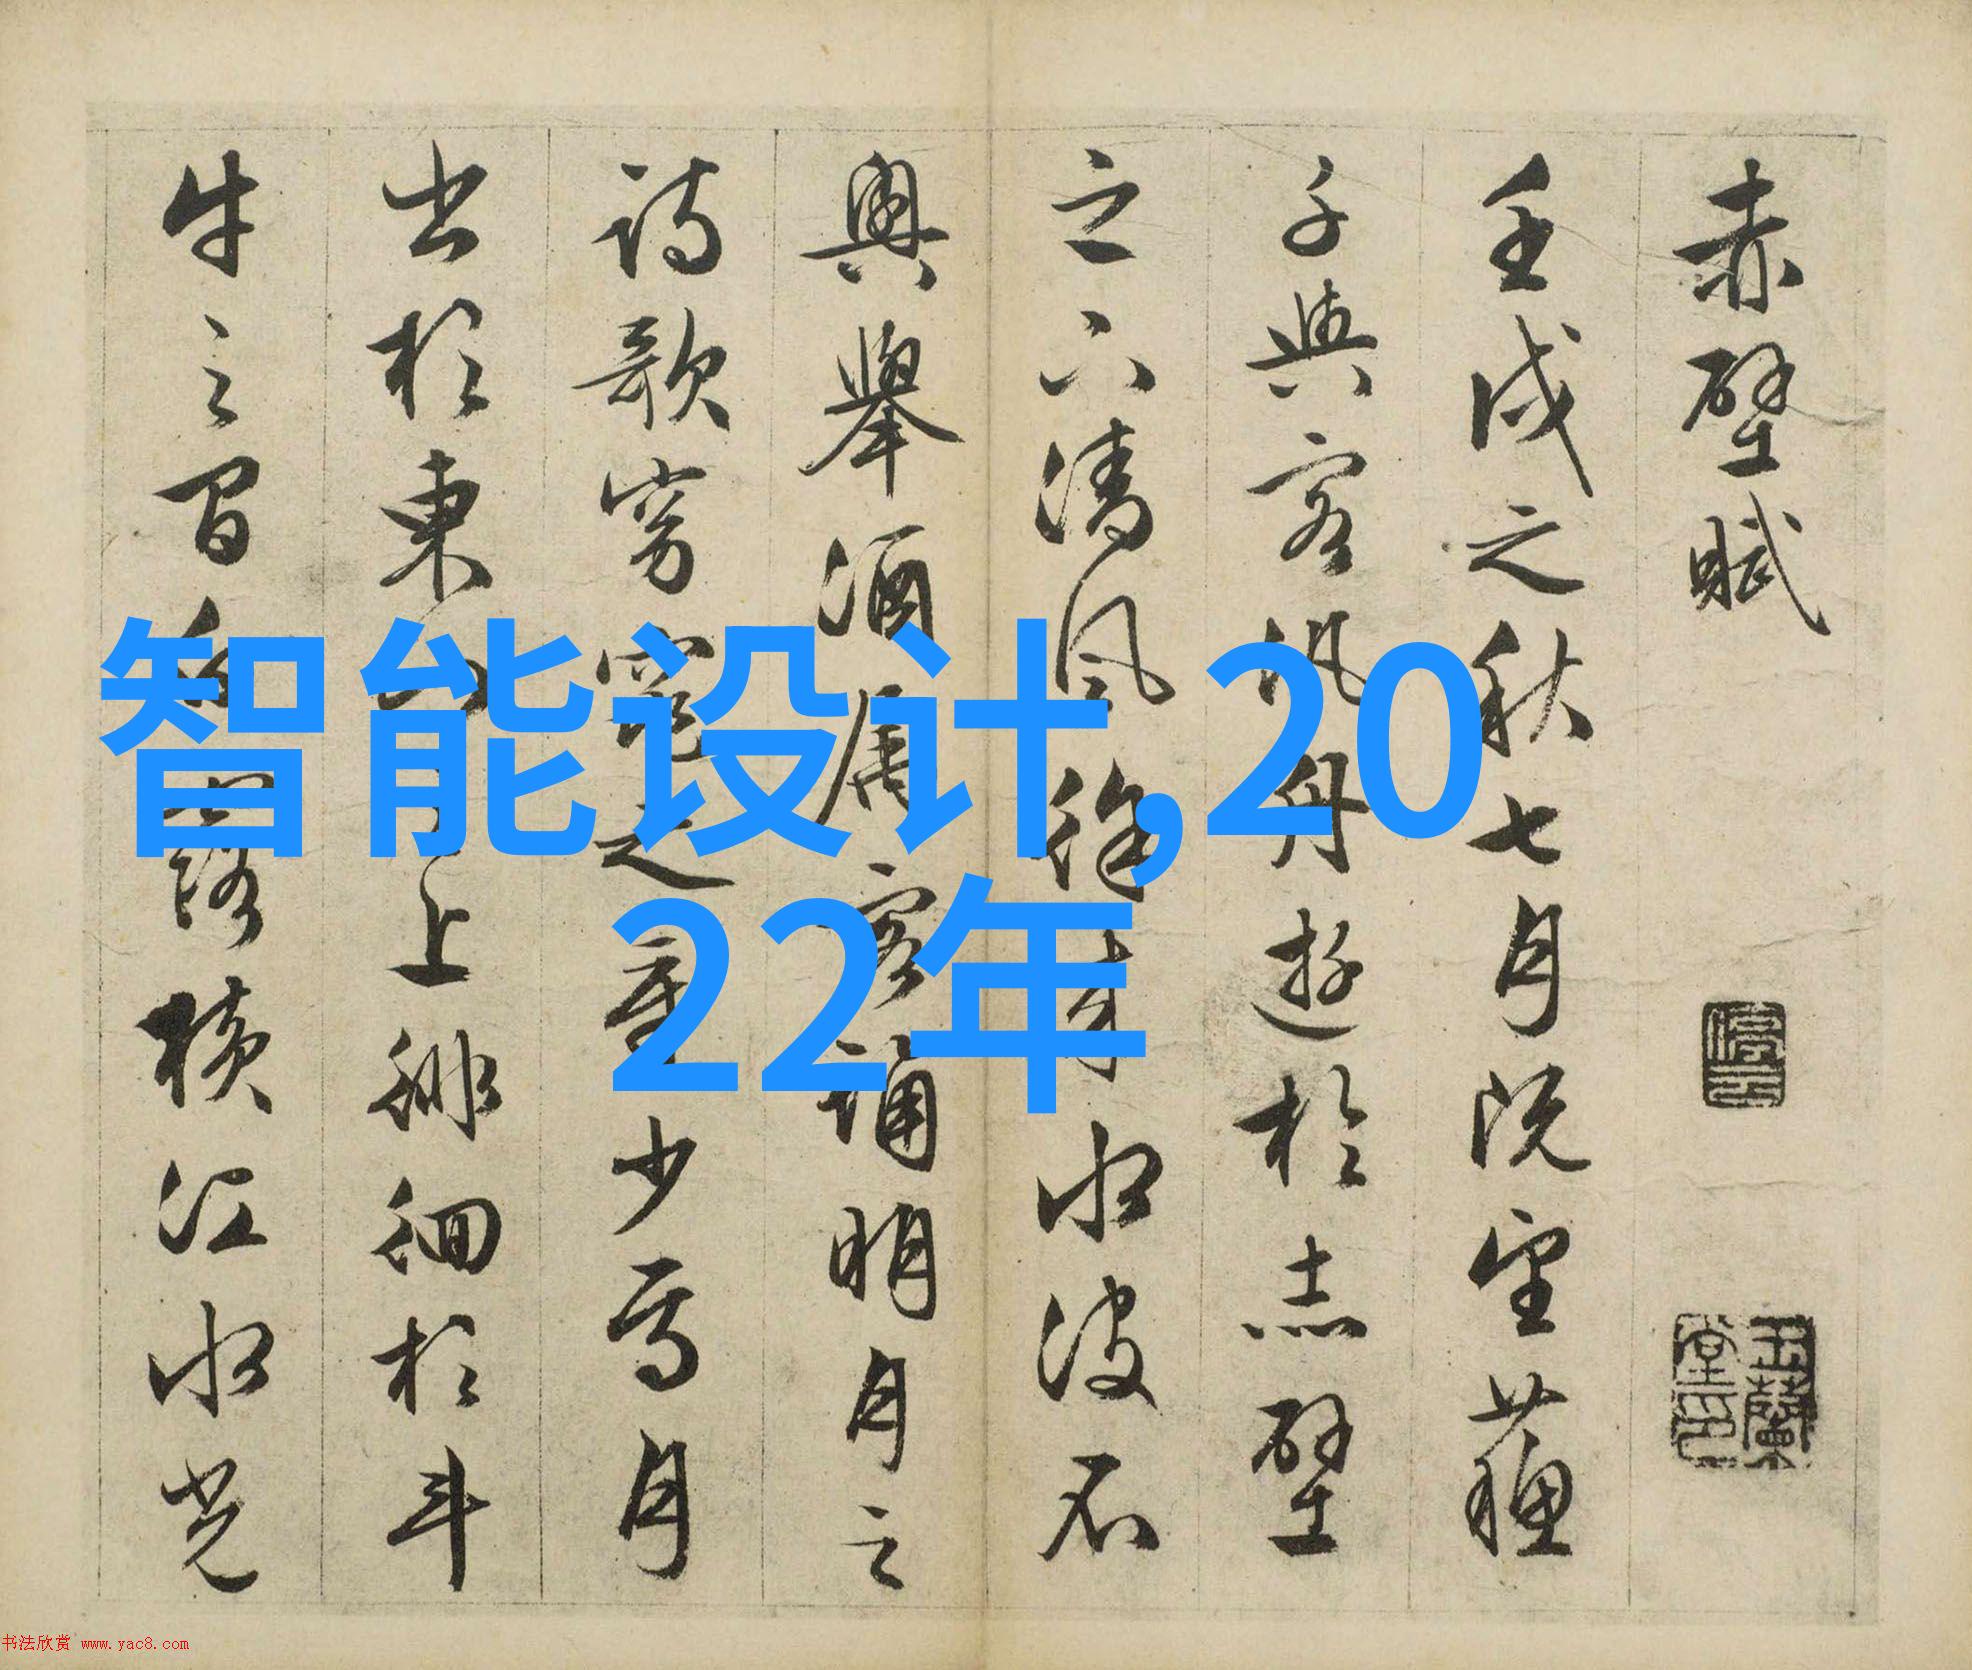 赤壁賦
壬戌之秋七月既望蘓
子與客汎舟遊於赤壁
之下清風徐来水波不
興舉酒属客誦明月之
詩歌窈窕之章少焉月
出於東山之上徘徊於斗
牛之間白露橫江水光
智能设计,20
22年
书法欣赏 www.yac8.com